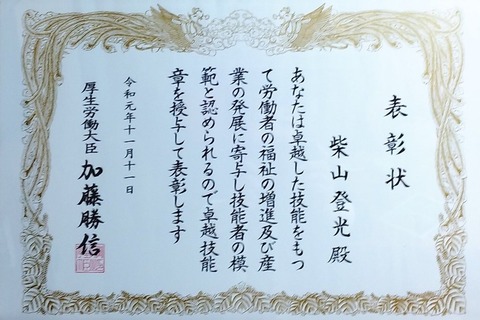 表彰状
柴山登光殿
あなたは卓越した技能をもつ
て労働者の福祉の増進及び産
業の発展に寄与し技能者の模
範と認められるので卓越技能
章を授与して表彰します
令和元年十一月十一日
厚生労働大臣 加藤勝信